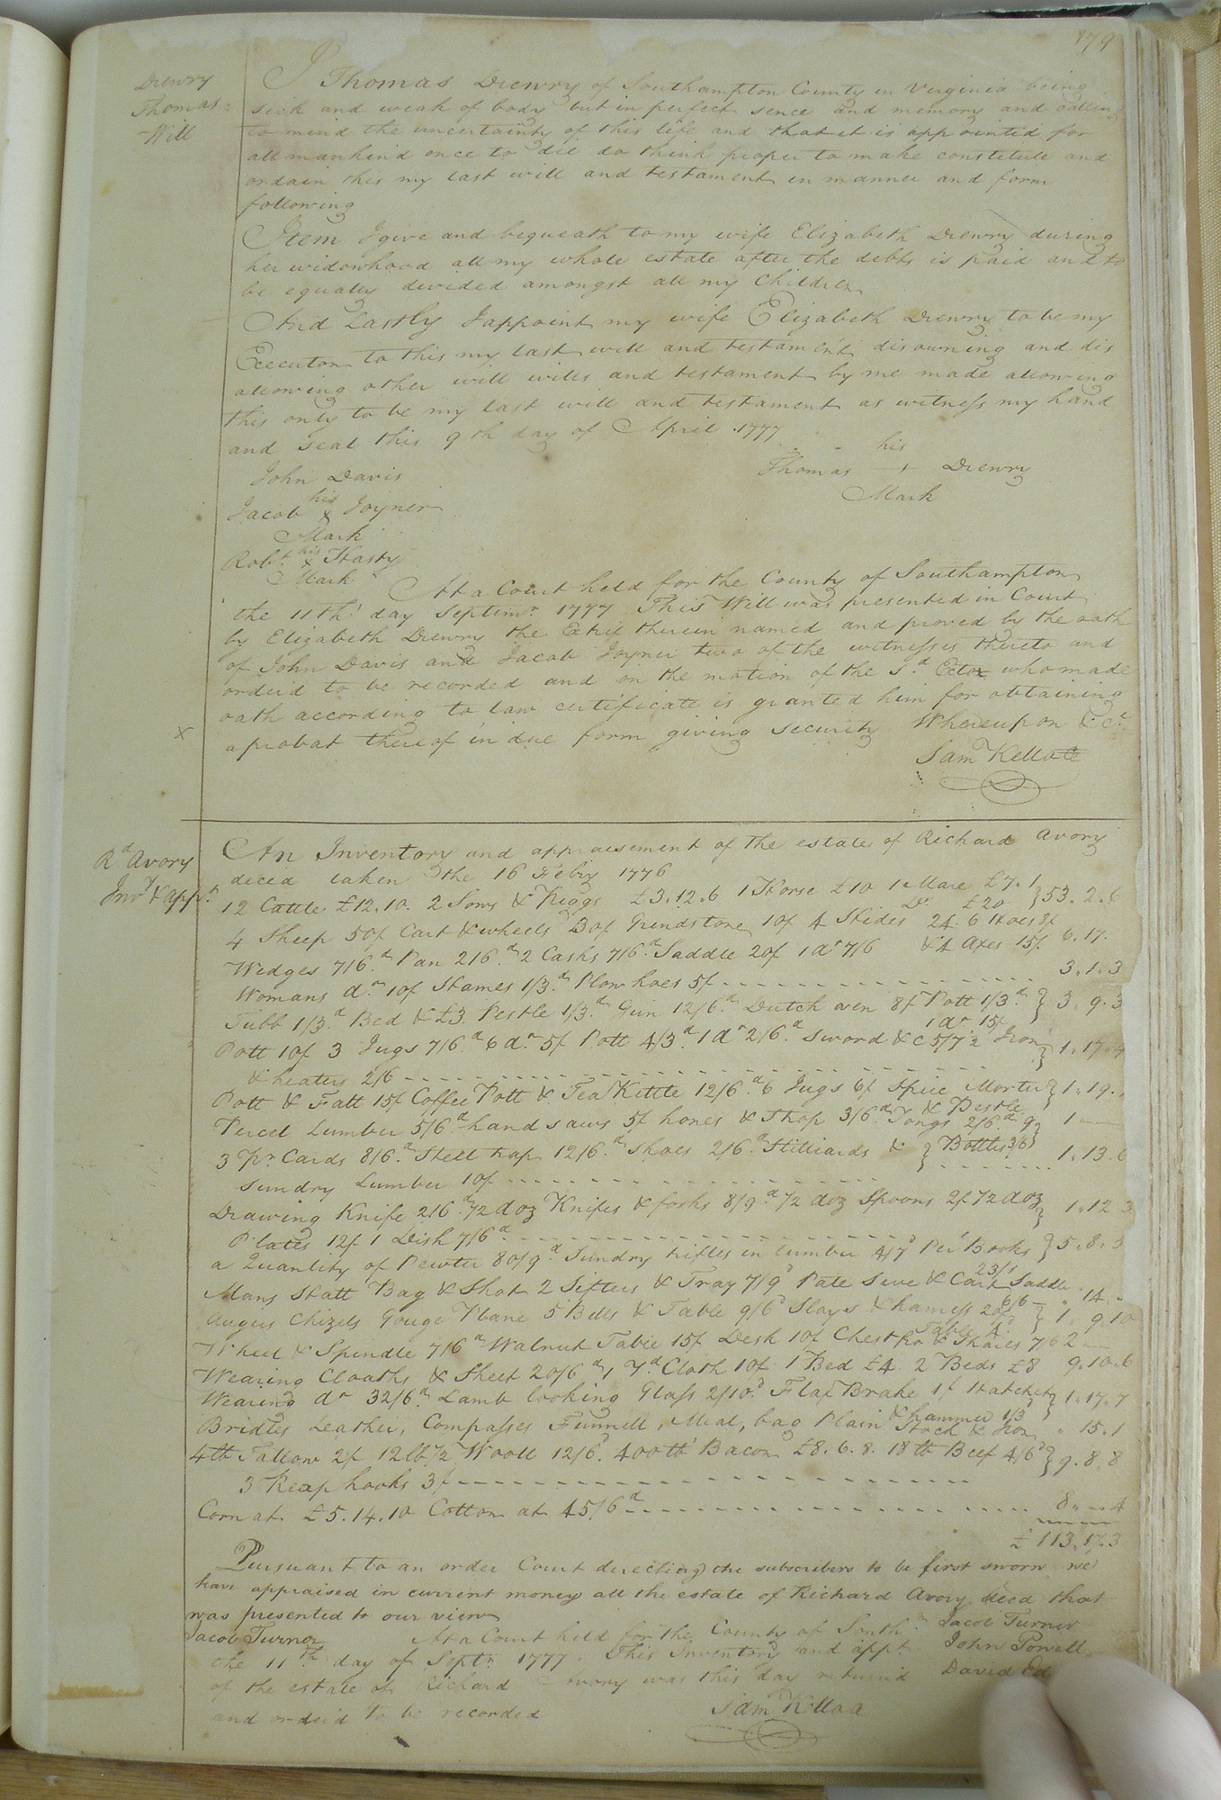 179
Drewry
Thomas
Will
I Thomas Drewry of Southampton County in Virginia being
sick and weak of body but in perfect sence and memory and calling
to mind the uncertainty of this life and that it is appointed for
all mankind once to die do think proper to make constitute and
ordain this my last will and testament in manner and form
following
Item I give and bequeath to my wife Elizabeth Drewry during
her widowhood all my whole estate after the debts is paid and to
be equally divided amongst all my Children
And Lastly I appoint my wife Elizabeth Drewry to be my
Executor to this my last will and testament disowning and dis
allowing other will wills and testament by me made allowing
this only to be my last will and testament as witness my hand
and seal this 9th day of April 1777
his
Thomas + Drewry
Mark
John Davis
Jacob his x Joyner
Mark
Robt his x Hasty
Mark
At a Court held for the County of Southampton
the 11th day Septimr 1777 This Will was presented in Court
by Elizabeth Drewry the Extrix therein named and proved by the oath
of John Davis and Jacob Joyner two of the witnesses thereto and
orderd to be recorded and on the motion of the sd who made
oath according to law certificate is granted him for obtaining
x a probat thereof in due form giving security Whereupon &c
Sam Kello
Rd Avory
Invy & appt
An Inventory and appraisement of the estate of Richard Avory
deced taken the 16 Feby 1776
12 Cattle £12.10. 2 Sows & Piggs £3.12.6 1 Horse £10 1 Mare £7.1 Do £20 } 53.2.6
4 Sheep 50/ Cart & wheels Grindstone 10/ 4 Hides 24. 6 Hoes 8/
Wedges 7/6 Pan 2/6 2 Casks 7/6 Saddle 20/ 1 do 7/6 & 4 Axes 15/ 6.17.
Womans do 10/ Hames 1/3 Plow hoes 5/ 3.1.3
Tubb 1/3 Bed & £3. Pestle 1/3 Gun 12/6 Dutch oven 8/ Pott 1/3 } 3.9.3
Pott 10/ 3 Jugs 7/6 6 do 5/ Pott 4/3 1 do 2/6 Sword &c 5/7 2 Iron 1 do 15/ } 1.17.4
& heaters 2/6
Pott & Fatt 15/ Coffee Pott & Tea Kettle 12/6 6 Jugs 6/ Spice Morter } 1.19.
& Pestle
Percel Lumber 5/6 hand saws 5/ hones & Strop 3/6 Tongs 2/6 9 } 1
3 pr Cards 8/6 Steel trap 12/6 Shoes 2/6 Stilliards & { Bottles 3/6 1.13.6
Sundry Lumber 10/
Drawing Knife 2/6 1/2 doz Knifes & forks 8/9 1/2 doz Spoons 2/ 1/2 doz } 1.12.3
Plates 12/ 1 Dish 7/6
a Quantity of Pewter 80/9 Sundry trifles in lumber 4/7 Per Books } 5.8.3
23/1
Mans Hatt Bag & Shot 2 Sifters & Tray 7/9 Pate Sive & Cart Saddle 6/6 .14.
Augers Chizels Gouge Plane 5 Bells & Table 9/6 Slays & harness 20/ } 1.9.10
Wheel & Spindle 7/6 Walnut Table 15/ Desk 10/ Chest & Chaires 7/6 2
Wearing Cloaths & Sheet 20/6 1 yd Cloth 10/ 1 Bed £4 2 Beds £8 9.10.6
Wearing do 32/6 Lamb looking Glass 2/10 Flax Brake 1/ Hatchet } 1.17.7
& hammer 1/3
Bridles Leather, Compasses Funnell, Meal, bag Plain Stock & Iron .15.1
4lb Tallow 2/ 12lb 1/2 Wooll 12/6 400lb Bacon £8.6.8. 18lb Beef 4/6 } 9.8.8
3 Reap hooks 3/
Corn at £5.14.10 Cotton at 45/6 8...4
£113.17.3
Pursuant to an order Court directing the subscribers to be first sworn we
have appraised in current money all the estate of Richard Avory deced that
was presented to our view
Jacob Turner
At a Court held for the County of South Jacob Turner
the 11th day of Septr 1777. This Inventory and appt John Powell
of the estate of Richard Avory was this day returnd David Ed
and orderd to be recorded
Sam Kello